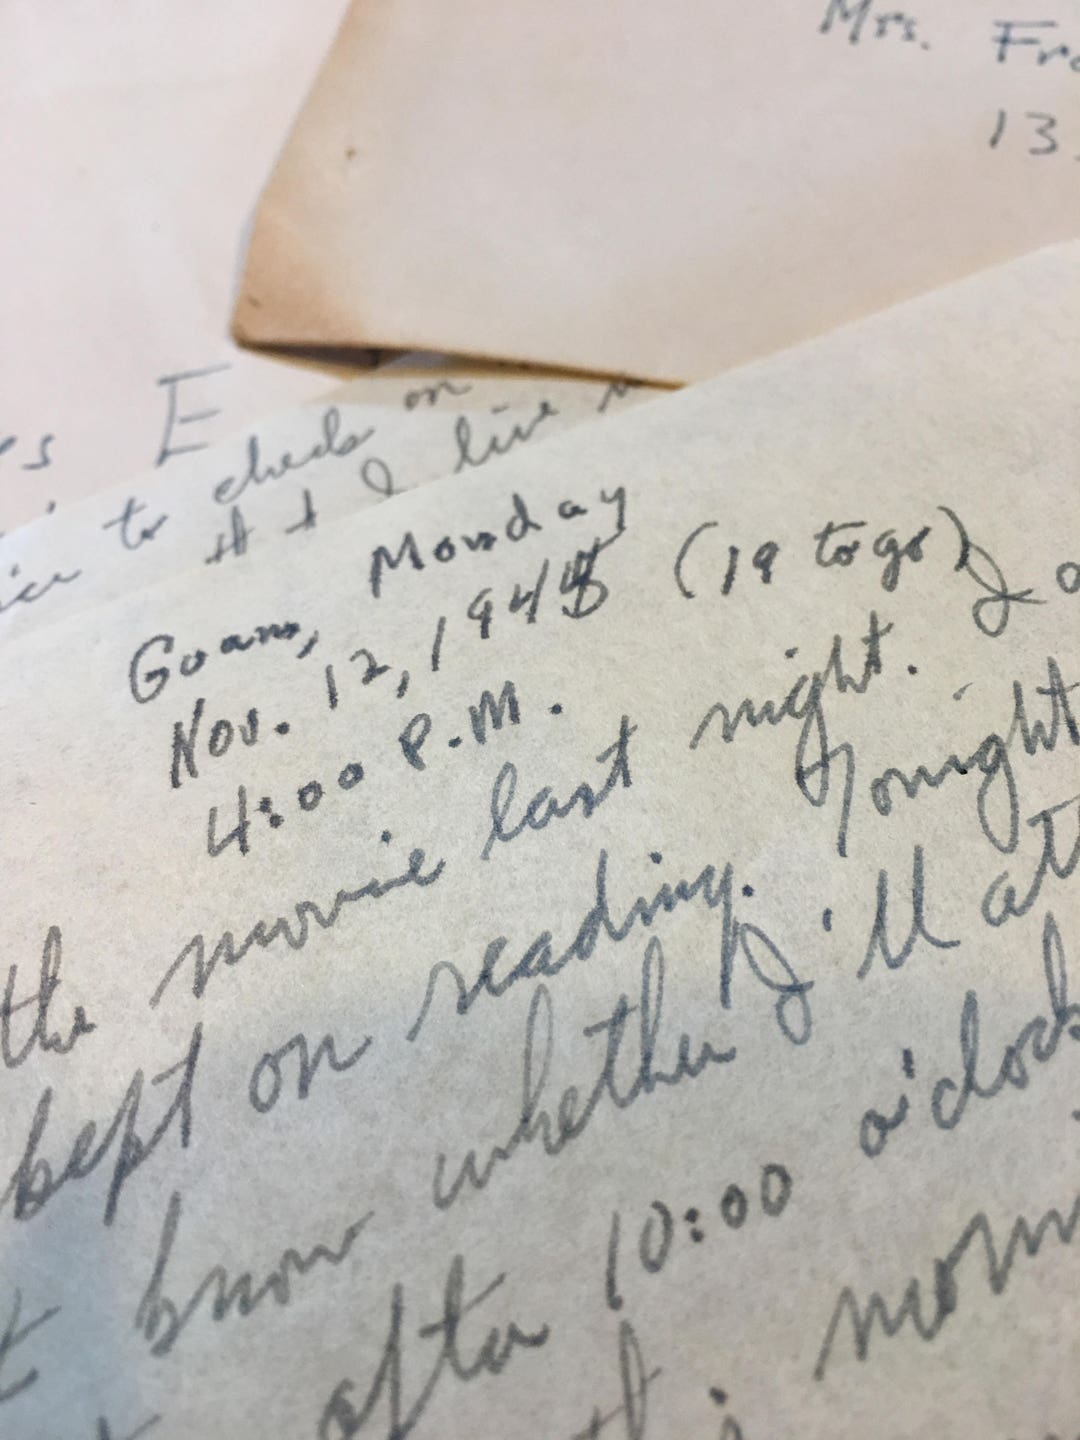 Mrs. Fra
13
es E
to check on
I live
Guam, Monday
Nov. 12, 1945 (19 to go) I
4:00 P.M.
the movie last night.
kept on reading. Tonight
know whether I'll att
after 10:00 o'clock
morn